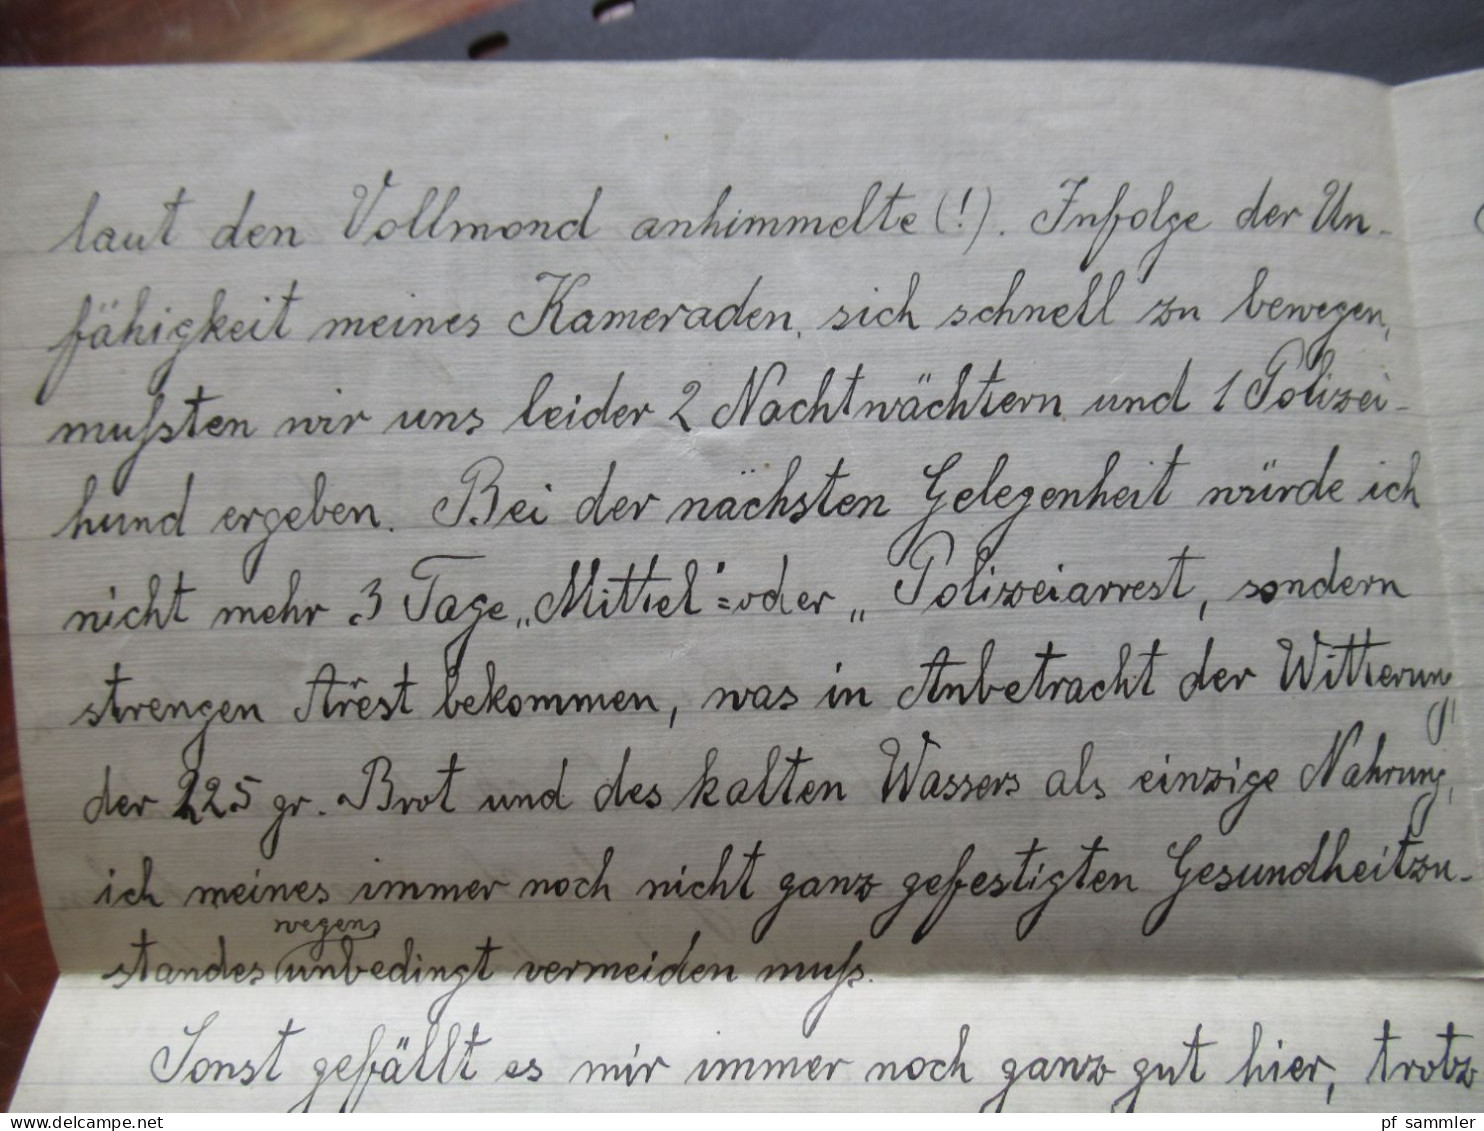 laut den Vollmond anhimmelte (!). Infolge der Un-
fähigkeit meines Kameraden, sich schnell zu bewegen,
mußsten wir uns leider 2 Nachtwächtern und 1 Polizei-
hund ergeben. Bei der nächsten Gelegenheit würde ich
nicht mehr 3 Tage „Mittel"= oder „Polizeiarrest, sondern
strengen Arrest bekommen, was in Anbetracht der Witterung
der 225 gr. Brot und des kalten Wassers als einzige Nahrung,
ich meines immer noch nicht ganz gefestigten Gesundheitzu-
wegens
standes unbedingt vermeiden muß.
Sonst gefällt es mir immer noch ganz gut hier, trotz
www.delcampe.net
pf_sammler